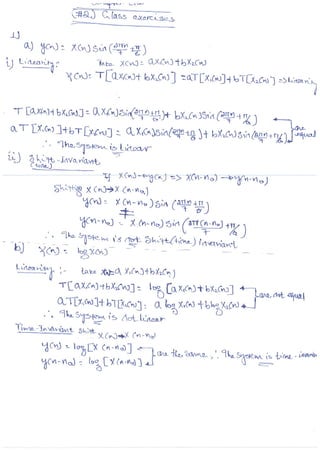 (#2.) Class exercises
1)
a) y(n) = x(n) sin(2πn/7 + π/6)
i) Linearity: Take x(n) = ax₁(n)+bx₂(n)
y(n) = T[ax₁(n)+bx₂(n)] = aT[x₁(n)]+bT[x₂(n)] =>
T[ax₁(n)+bx₂(n)] = ax₁(n)sin(2πn/7+π/6)+bx₂(n)sin(2πn/7+π/6)
aT[x₁(n)]+bT[x₂(n)] = ax₁(n)sin(2πn/7+π/6)+bx₂(n)sin(2πn/7+π/6) are equal
∴ The system is Linear
ii) Shift-Invariant
(time)
if x(n)→y(n) => x(n-n₀)→y(n-n₀)
Shifting x(n)→x(n-n₀)
y(n) = x(n-n₀) sin(2πn/7+π/6)
≠
y(n-n₀) = x(n-n₀) sin(2π(n-n₀)/7+π/6)
∴ The system is not Shift(time) Invariant
b) y(n) = log x(n)
Linearity :- take ax₁(n)+bx₂(n)
T[ax₁(n)+bx₂(n)] = log[ax₁(n)+bx₂(n)]
aT[x₁(n)]+bT[x₂(n)] = a log x₁(n)+b log x₂(n) are not equal
∴ The System is not linear
Time-Invariant Shift
x(n)→x(n-n₀)
y(n) = log[x(n-n₀)]
y(n-n₀) = log[x(n-n₀)] are the same, ∴ The System is time-